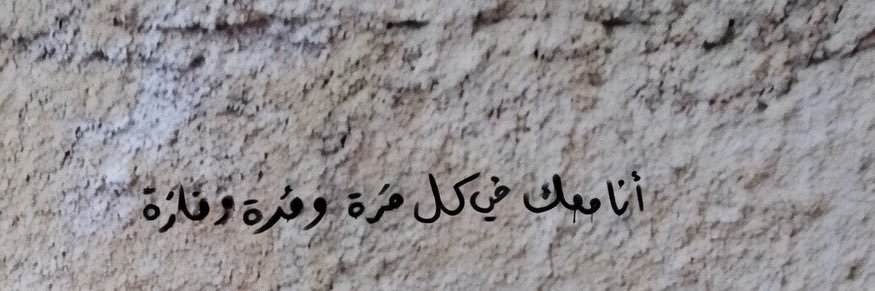 أنا معك في كل مَرة ومُرة ومارَة